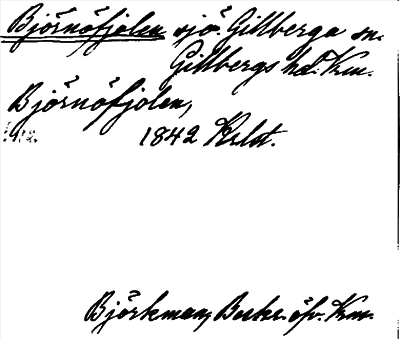 Björnöfjolen sjö. Gillberga sn.
Gillbergs hd. Krm.
Björnöfjolen,
1842 Krlst.
Björkman, Beskr. öfv. Krm.